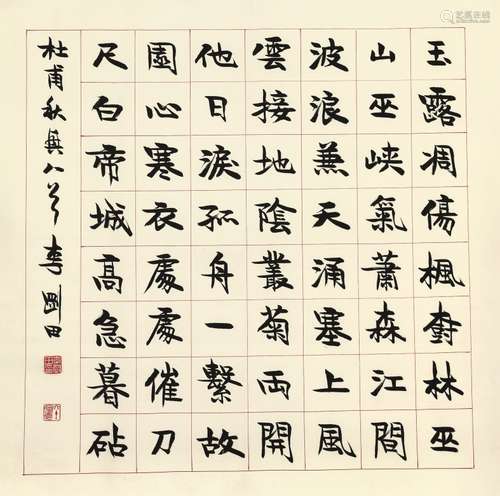 玉露凋傷楓樹林巫
山巫峽氣蕭森江間
波浪兼天涌塞上風
雲接地陰叢菊両開
他日淚孤舟一繫故
園心寒衣處處催刀
尺白帝城高急暮砧
杜甫秋興八首 李剛田